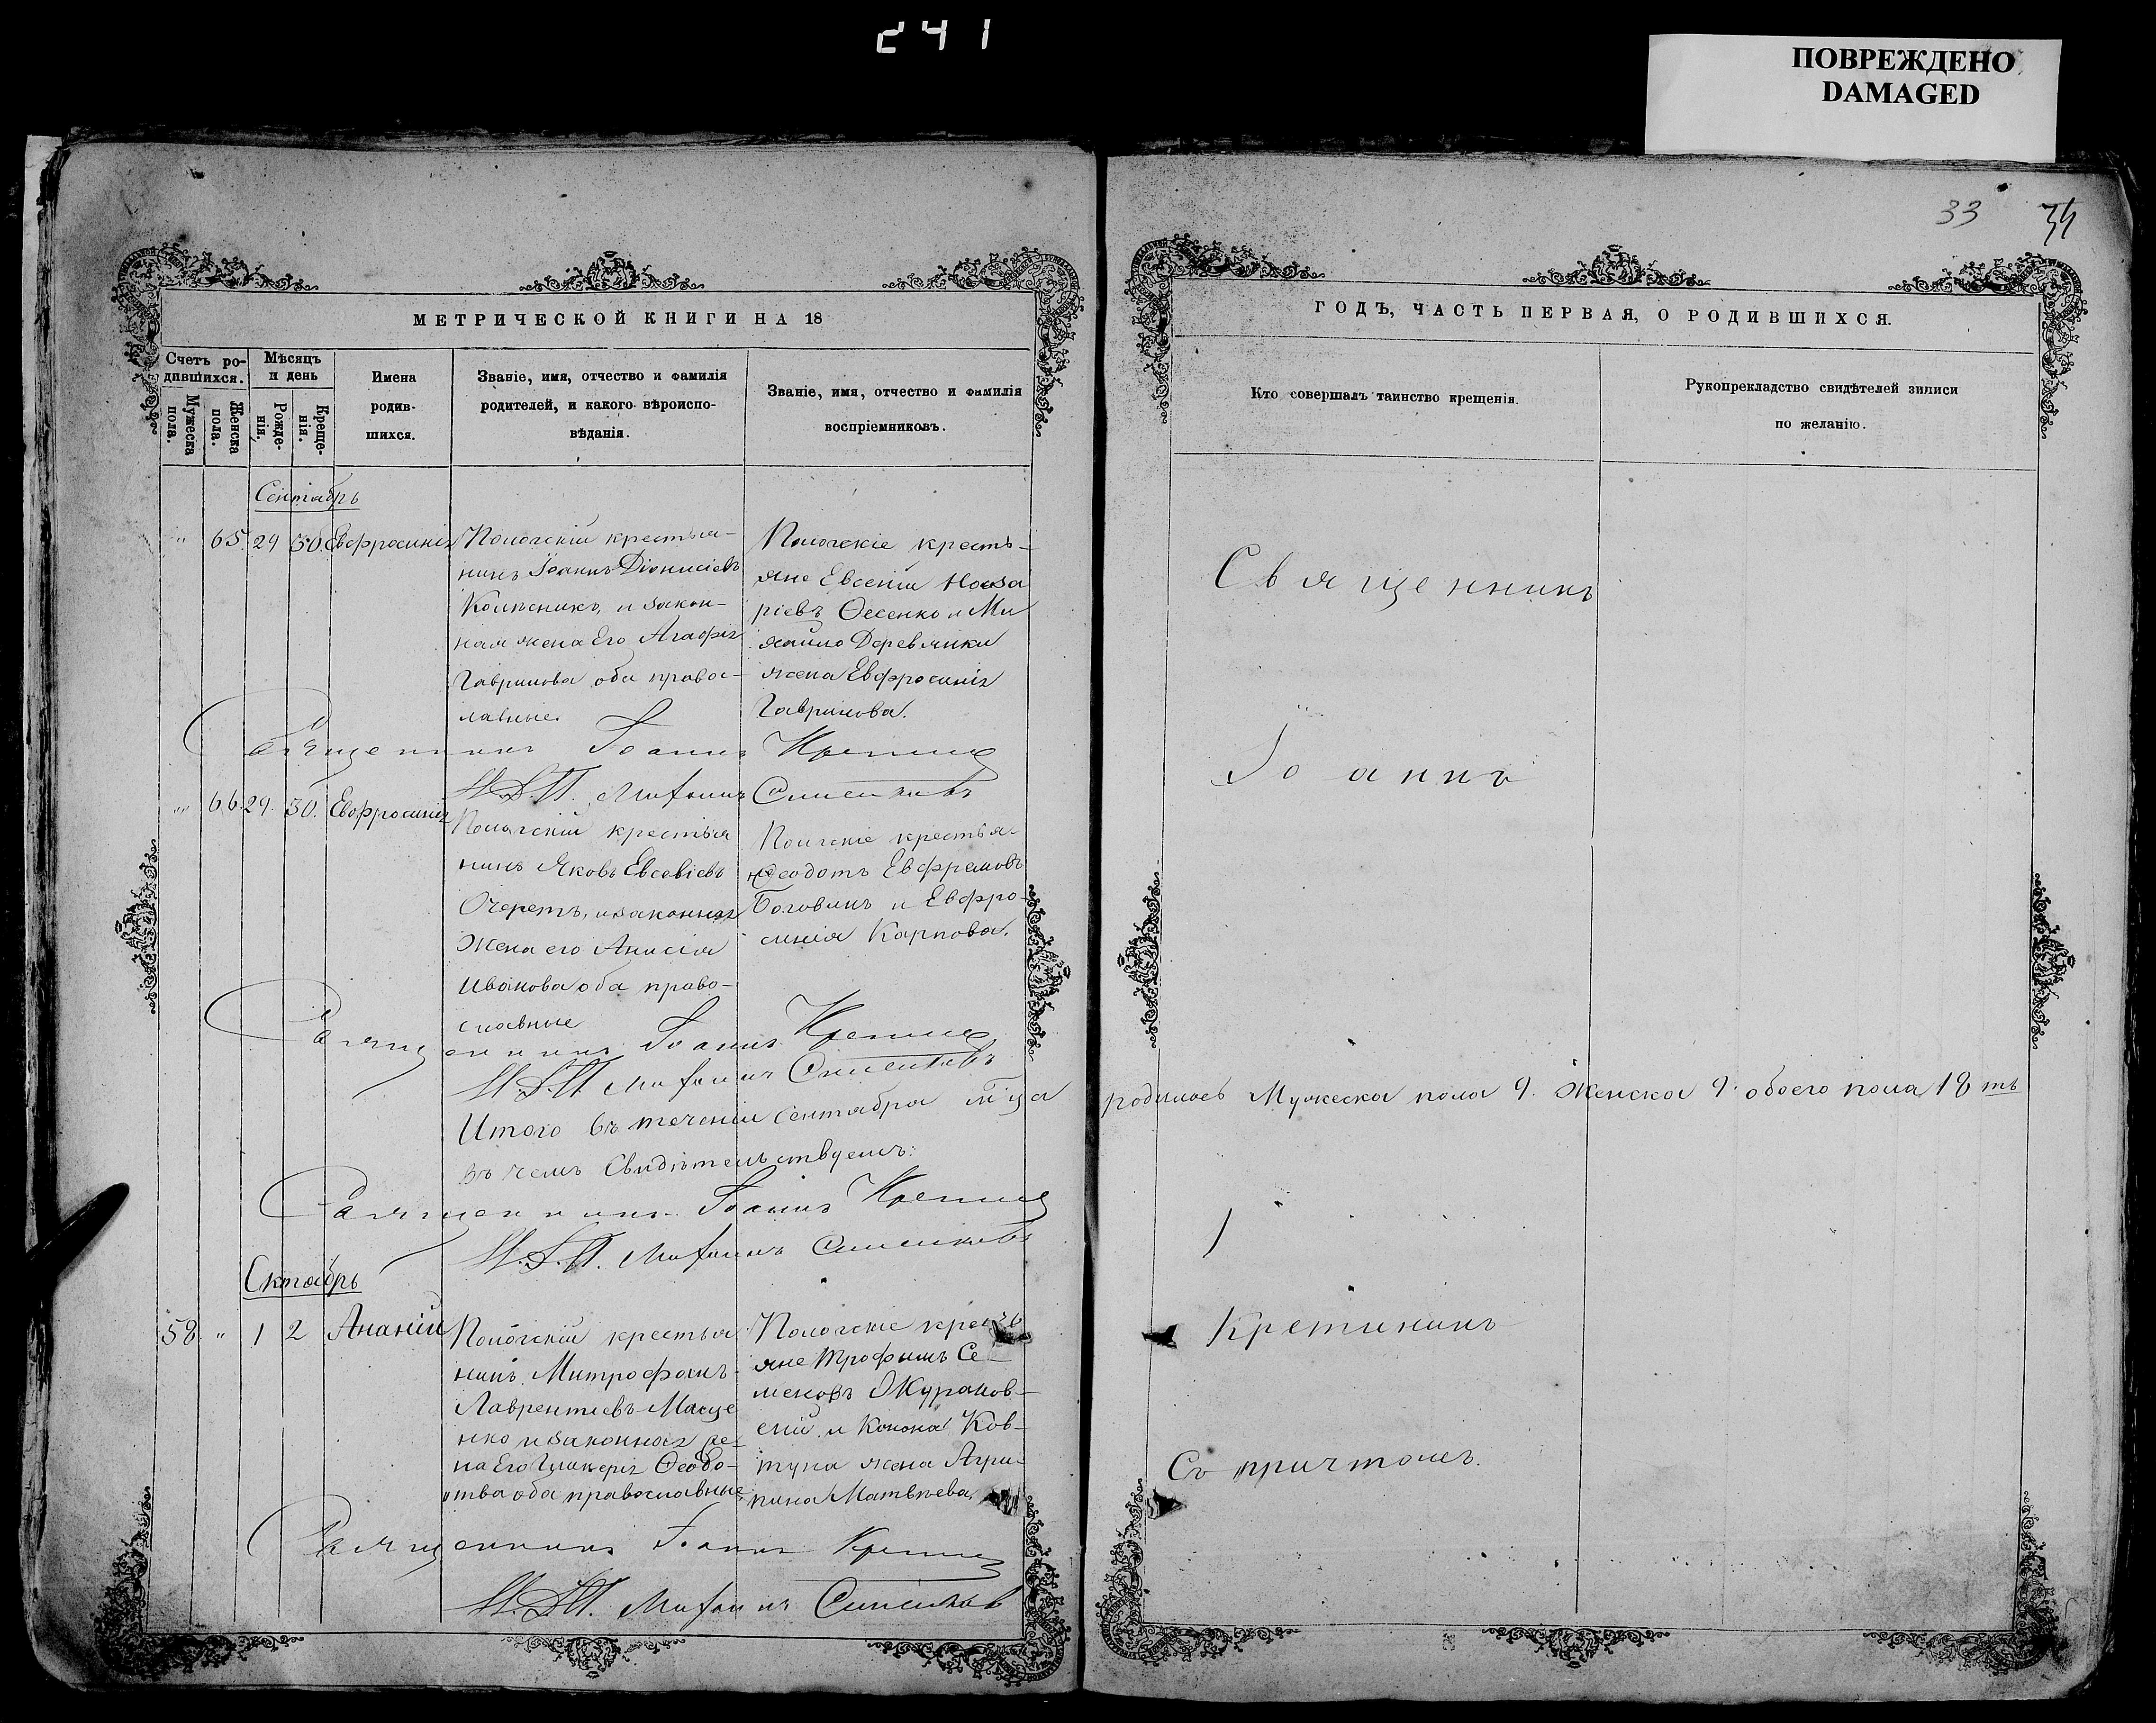 241
ПОВРЕЖДЕНО
DAMAGED
33 34
МЕТРИЧЕСКОЙ КНИГИ НА 18
Счетъ ро-
дившихся.
Мужеска
пола.
Женска
пола.
Мѣсяцъ
и день
Рожде-
нія.
Креще-
нія.
Имена
родив-
шихся.
Званіе, имя, отчество и фамилія
родителей, и какого вѣроиспо-
вѣданія.
Званіе, имя, отчество и фамилія
воспріемниковъ.
Сентябрь
" 65. 29 30. Евфросинія
Пологскій крестья-
нинъ Іоаннъ Діонисіевъ
Колѣсникъ, и закон-
ная жена Его Агафія
Гаврилова оба правос-
лавные.
Пологскіе кресть-
яне Евсеній
ріевъ Ѳесенко и Ми
хаило Деревянки
жена Евфросинія
Гаврилова.
Священникъ Іоаннъ
И.Д.П.
" 66. 29. 30. Евфросинія
Пологскій крестья
нинъ Яковъ Евсевіевъ
Очеретъ, и законная
жена его Анисія
Иванова оба право-
славные
Пологскіе крестья-
не Ѳеодотъ Евфремовъ
Боговинъ и Евфро-
синія Карпова.
Священникъ Іоаннъ
И.Д.П.
Итого въ теченіи Сентября м-ца
въ чемъ Свидѣтельствуемъ:
Священникъ Іоаннъ
И.Д.П.
Октябрь
58. " 1 2 Ананій
Пологскій крестья
нинъ Митрофанъ
Лаврентіевъ Мащe
нко и законная же-
на Его Гликерія Ѳеодо-
това оба православные
Пологскіе кресть
яне Трофимъ Се-
меновъ Журавов-
скій и Конона Ков-
туна жена Агри-
пина Матвѣева.
Священникъ Іоаннъ
И.Д.П.
ГОДЪ, ЧАСТЬ ПЕРВАЯ, О РОДИВШИХСЯ.
Кто совершалъ таинство крещенія.
Рукоприкладство свидѣтелей зиписи
по желанію.
Священникъ
Іоаннъ
родилось Мужеска пола 9. Женска 9. обоего пола 18 ть
Кретининъ
Съ причтомъ.